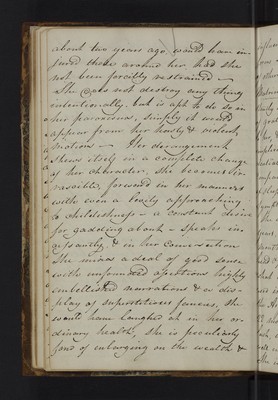 about two years ago would have in-
jured those around her had she
not been forcibly restrained —
She does not destroy any thing
intentionally, but is apt to do so in
her paroxisms, simply it would
appear from her hasty & violent
motions — Her derangement
shews itself in a complete change
of her character, she becomes
forward in her manners
with even a levity approaching
to childishness — a constant desire
for gadding about — speaks in-
cessantly, & in her conversation
she mixes a deal of good sense
with unfounded assertions highly
embellished narrations & a dis-
play of superstitious fancies, she
would have laughed at in her or-
dinary health, she is peculiarly
fond of enlarging on the wealth &